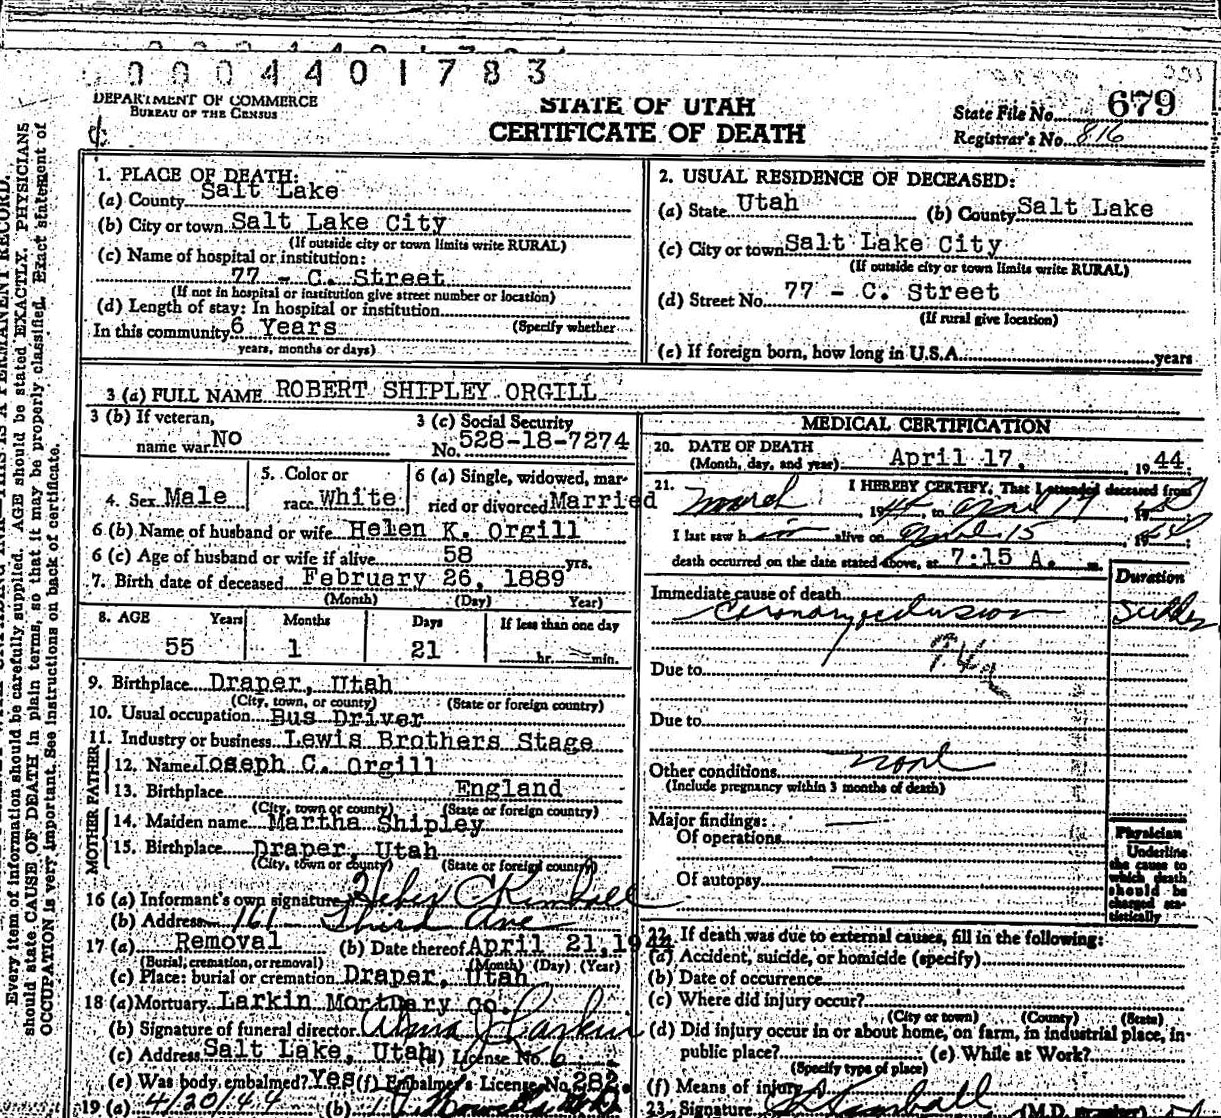 0004401783
DEPARTMENT OF COMMERCE
BUREAU OF THE CENSUS
STATE OF UTAH
CERTIFICATE OF DEATH
State File No. 679
Registrar's No. 816
1. PLACE OF DEATH:
(a) County Salt Lake
(b) City or town Salt Lake City
(If outside city or town limits write RURAL)
(c) Name of hospital or institution:
77 - C. Street
(If not in hospital or institution give street number or location)
(d) Length of stay: In hospital or institution
In this community 6 Years (Specify whether
years, months or days)
2. USUAL RESIDENCE OF DECEASED:
(a) State Utah (b) County Salt Lake
(c) City or town Salt Lake City
(If outside city or town limits write RURAL)
(d) Street No. 77 - C. Street
(If rural give location)
(e) If foreign born, how long in U.S.A. years
3 (a) FULL NAME ROBERT SHIPLEY ORGILL
3 (b) If veteran,
name war No
3 (c) Social Security
No. 528-18-7274
4. Sex Male
5. Color or
race White
6 (a) Single, widowed, mar-
ried or divorced Married
6 (b) Name of husband or wife Helen K. Orgill
6 (c) Age of husband or wife if alive 58 yrs.
7. Birth date of deceased February 26, 1889
(Month) (Day) Year)
8. AGE Years Months Days If less than one day
55 1 21 hr. min.
9. Birthplace Draper, Utah
(City, town, or county) (State or foreign country)
10. Usual occupation Bus Driver
11. Industry or business Lewis Brothers Stage
FATHER
12. Name Joseph C. Orgill
13. Birthplace England
(City, town or county) (State or foreign country)
MOTHER
14. Maiden name Martha Shipley
15. Birthplace Draper, Utah
(City, town or county) (State or foreign country)
16 (a) Informant's own signature Heber C Kimball
(b) Address 161 Third Ave
17 (a) Removal (b) Date thereof April 21, 1944
(Burial, cremation, or removal) (Month) (Day) (Year)
(c) Place: burial or cremation Draper, Utah
18 (a) Mortuary Larkin Mortuary Co.
(b) Signature of funeral director Alma J Larkin
(c) Address Salt Lake, Utah (d) License No. 6
(e) Was body embalmed? Yes (f) Embalmer's License No. 282.
19 (a) 4/20/44 (b)
MEDICAL CERTIFICATION
20. DATE OF DEATH
(Month, day, and year) April 17, 1944.
21. I HEREBY CERTIFY, That I attended deceased from
March, 1944 to April 17, 19
I last saw him alive on April 15 19
death occurred on the date stated above, at 7:15 A. m.
Duration
Immediate cause of death
Coronary occlusion
Due to
Due to
Other conditions none
(Include pregnancy within 3 months of death)
Major findings:
Of operations
Of autopsy
Physician
Underline
the cause to
which death
should be
charged sta-
tistically
22. If death was due to external causes, fill in the following:
(a) Accident, suicide, or homicide (specify)
(b) Date of occurrence
(c) Where did injury occur?
(City or town) (County) (State)
(d) Did injury occur in or about home, on farm, in industrial place, in-
public place? (e) While at Work?
(Specify type of place)
(f) Means of injury
23. Signature Kimball (M.D.
Every item of information should be carefully supplied. AGE should be stated EXACTLY. PHYSICIANS
should state CAUSE OF DEATH in plain terms, so that it may be properly classified. Exact statement of
OCCUPATION is very important. See instructions on back of certificate.